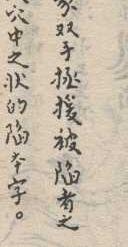 象双手拯援被陷者之
穴中之状的陷本字。